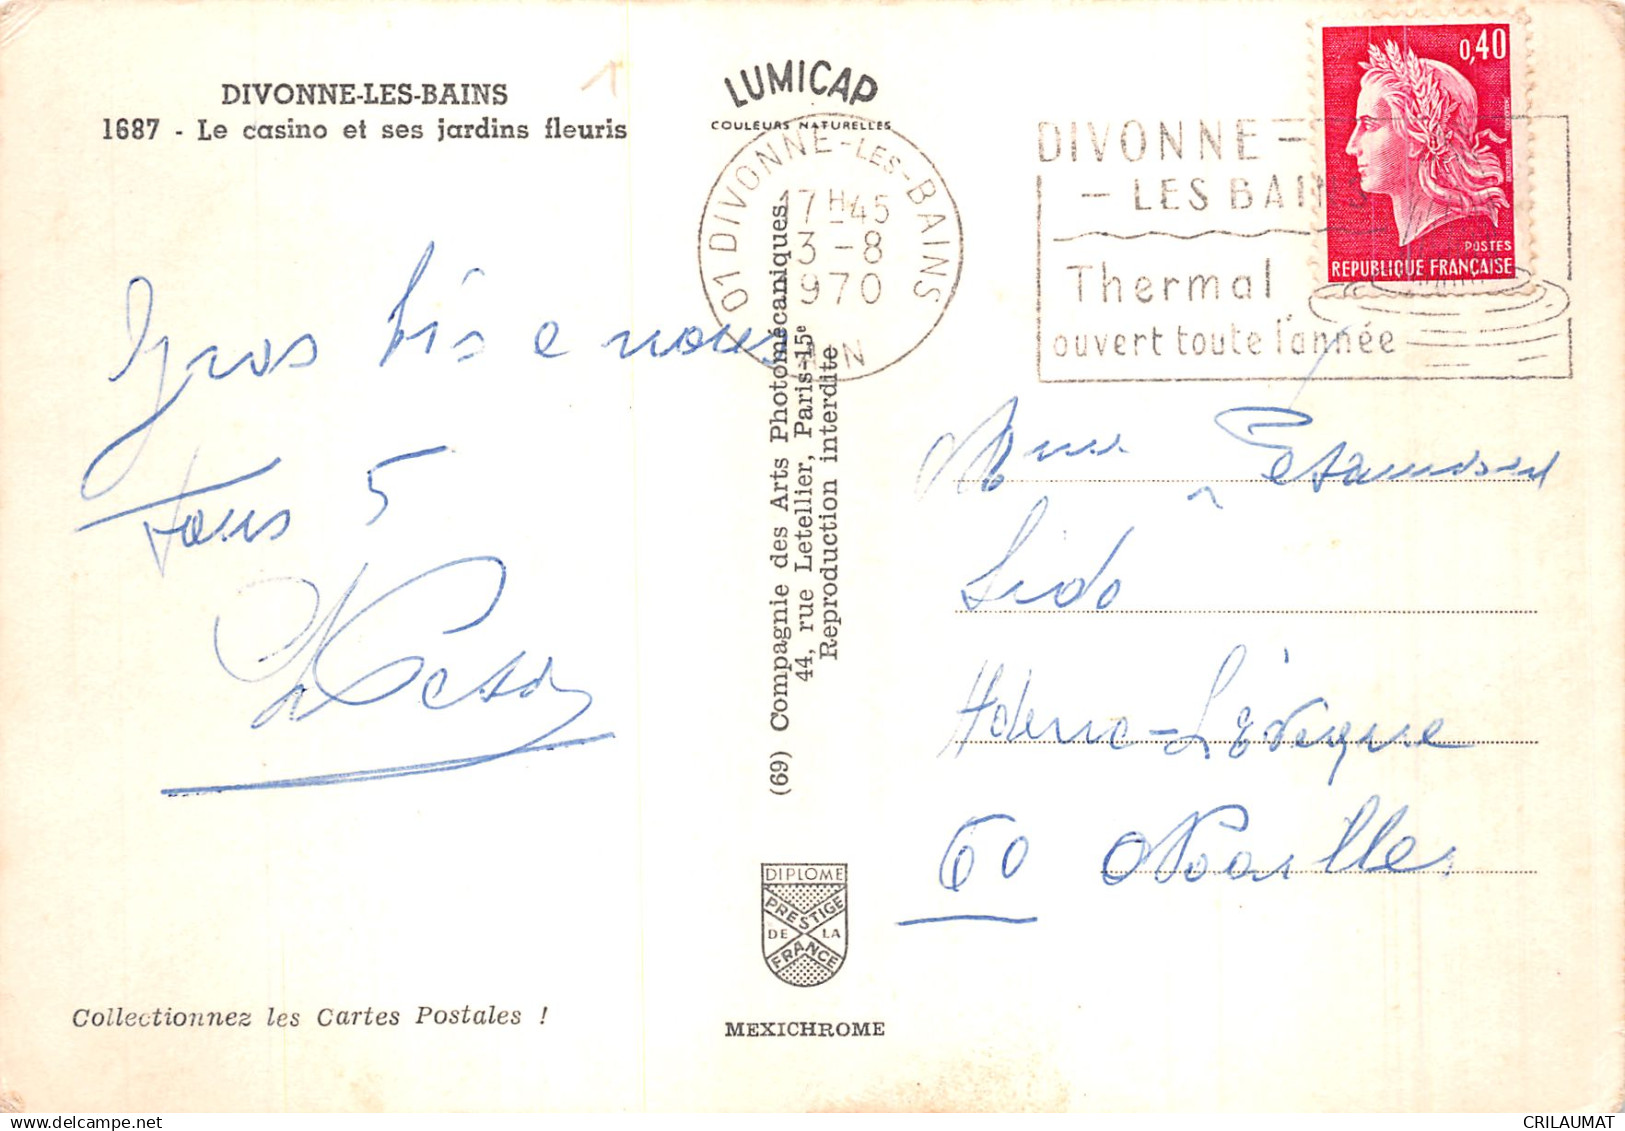 DIVONNE-LES-BAINS
1687 - Le casino et ses jardins fleuris
LUMICAP
COULEURS NATURELLES
01 DIVONNE-LES-BAINS
17H45
3-8
1970
AIN
DIVONNE-
-LES BAINS
Thermal
ouvert toute l'année
0,40
POSTES
REPUBLIQUE FRANÇAISE
Gros bis e nous
tous 5
Mme
Lido
60 Noailles
(69) Compagnie des Arts Photomécaniques
44, rue Letellier, Paris-15e
Reproduction interdite
DIPLOME
PRESTIGE
DE LA
FRANCE
MEXICHROME
Collectionnez les Cartes Postales !
CRILAUMAT